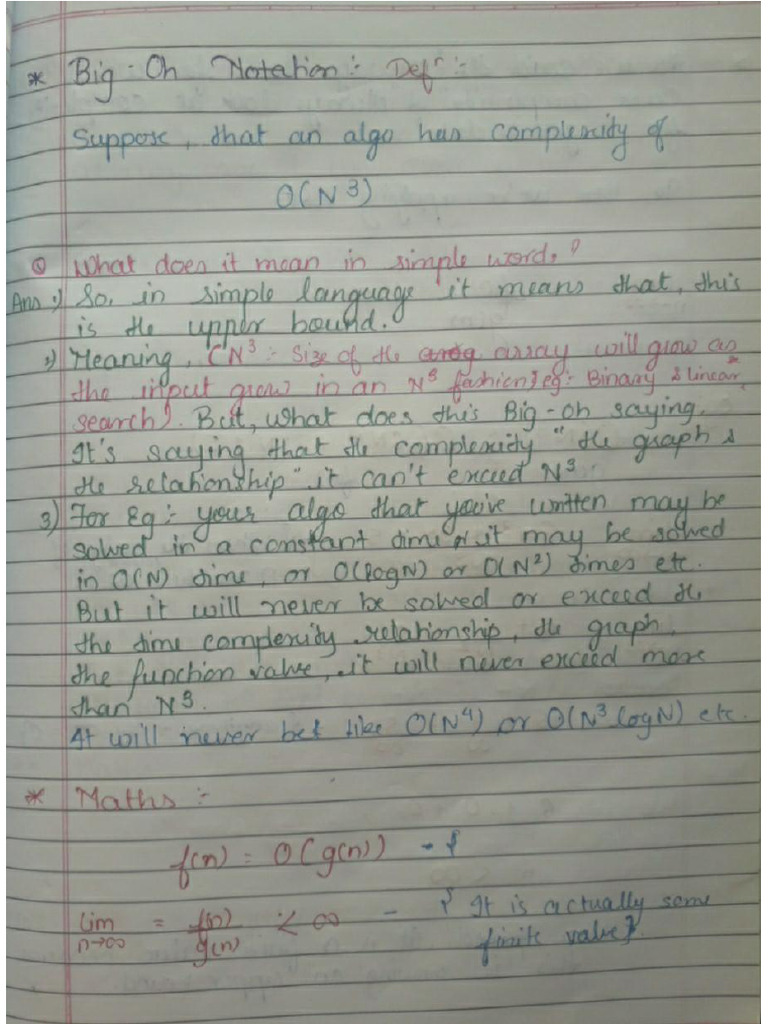 * Big-Oh Notation :- Defn :-
Suppose, that an algo has complexity of
O(N3)
Q What does it mean in simple word.?
Ans 1) So, in simple language it means that, this
is the upper bound.
2) Meaning, (N3 :- Size of the array will grow as
the input grow in an N3 fashion} eg:- Binary & linear
search). But, what does this Big-oh saying.
It's saying that the complexity "the graph &
the relationship" it can't exceed N3
3) For Eg :- your algo that you've written may be
solved in a constant time or it may be solved
in O(N) time, or O(logN) or O(N2) times etc.
But it will never be solved or exceed the
the time complexity relationship, the graph,
the function value, it will never exceed more
than N3.
It will never be like O(N4) or O(N3 logN) etc.
* Maths :-
f(n) = O(g(n)) -
lim n→∞ = f(n)/g(n) < ∞ - { It is actually some
finite value}.